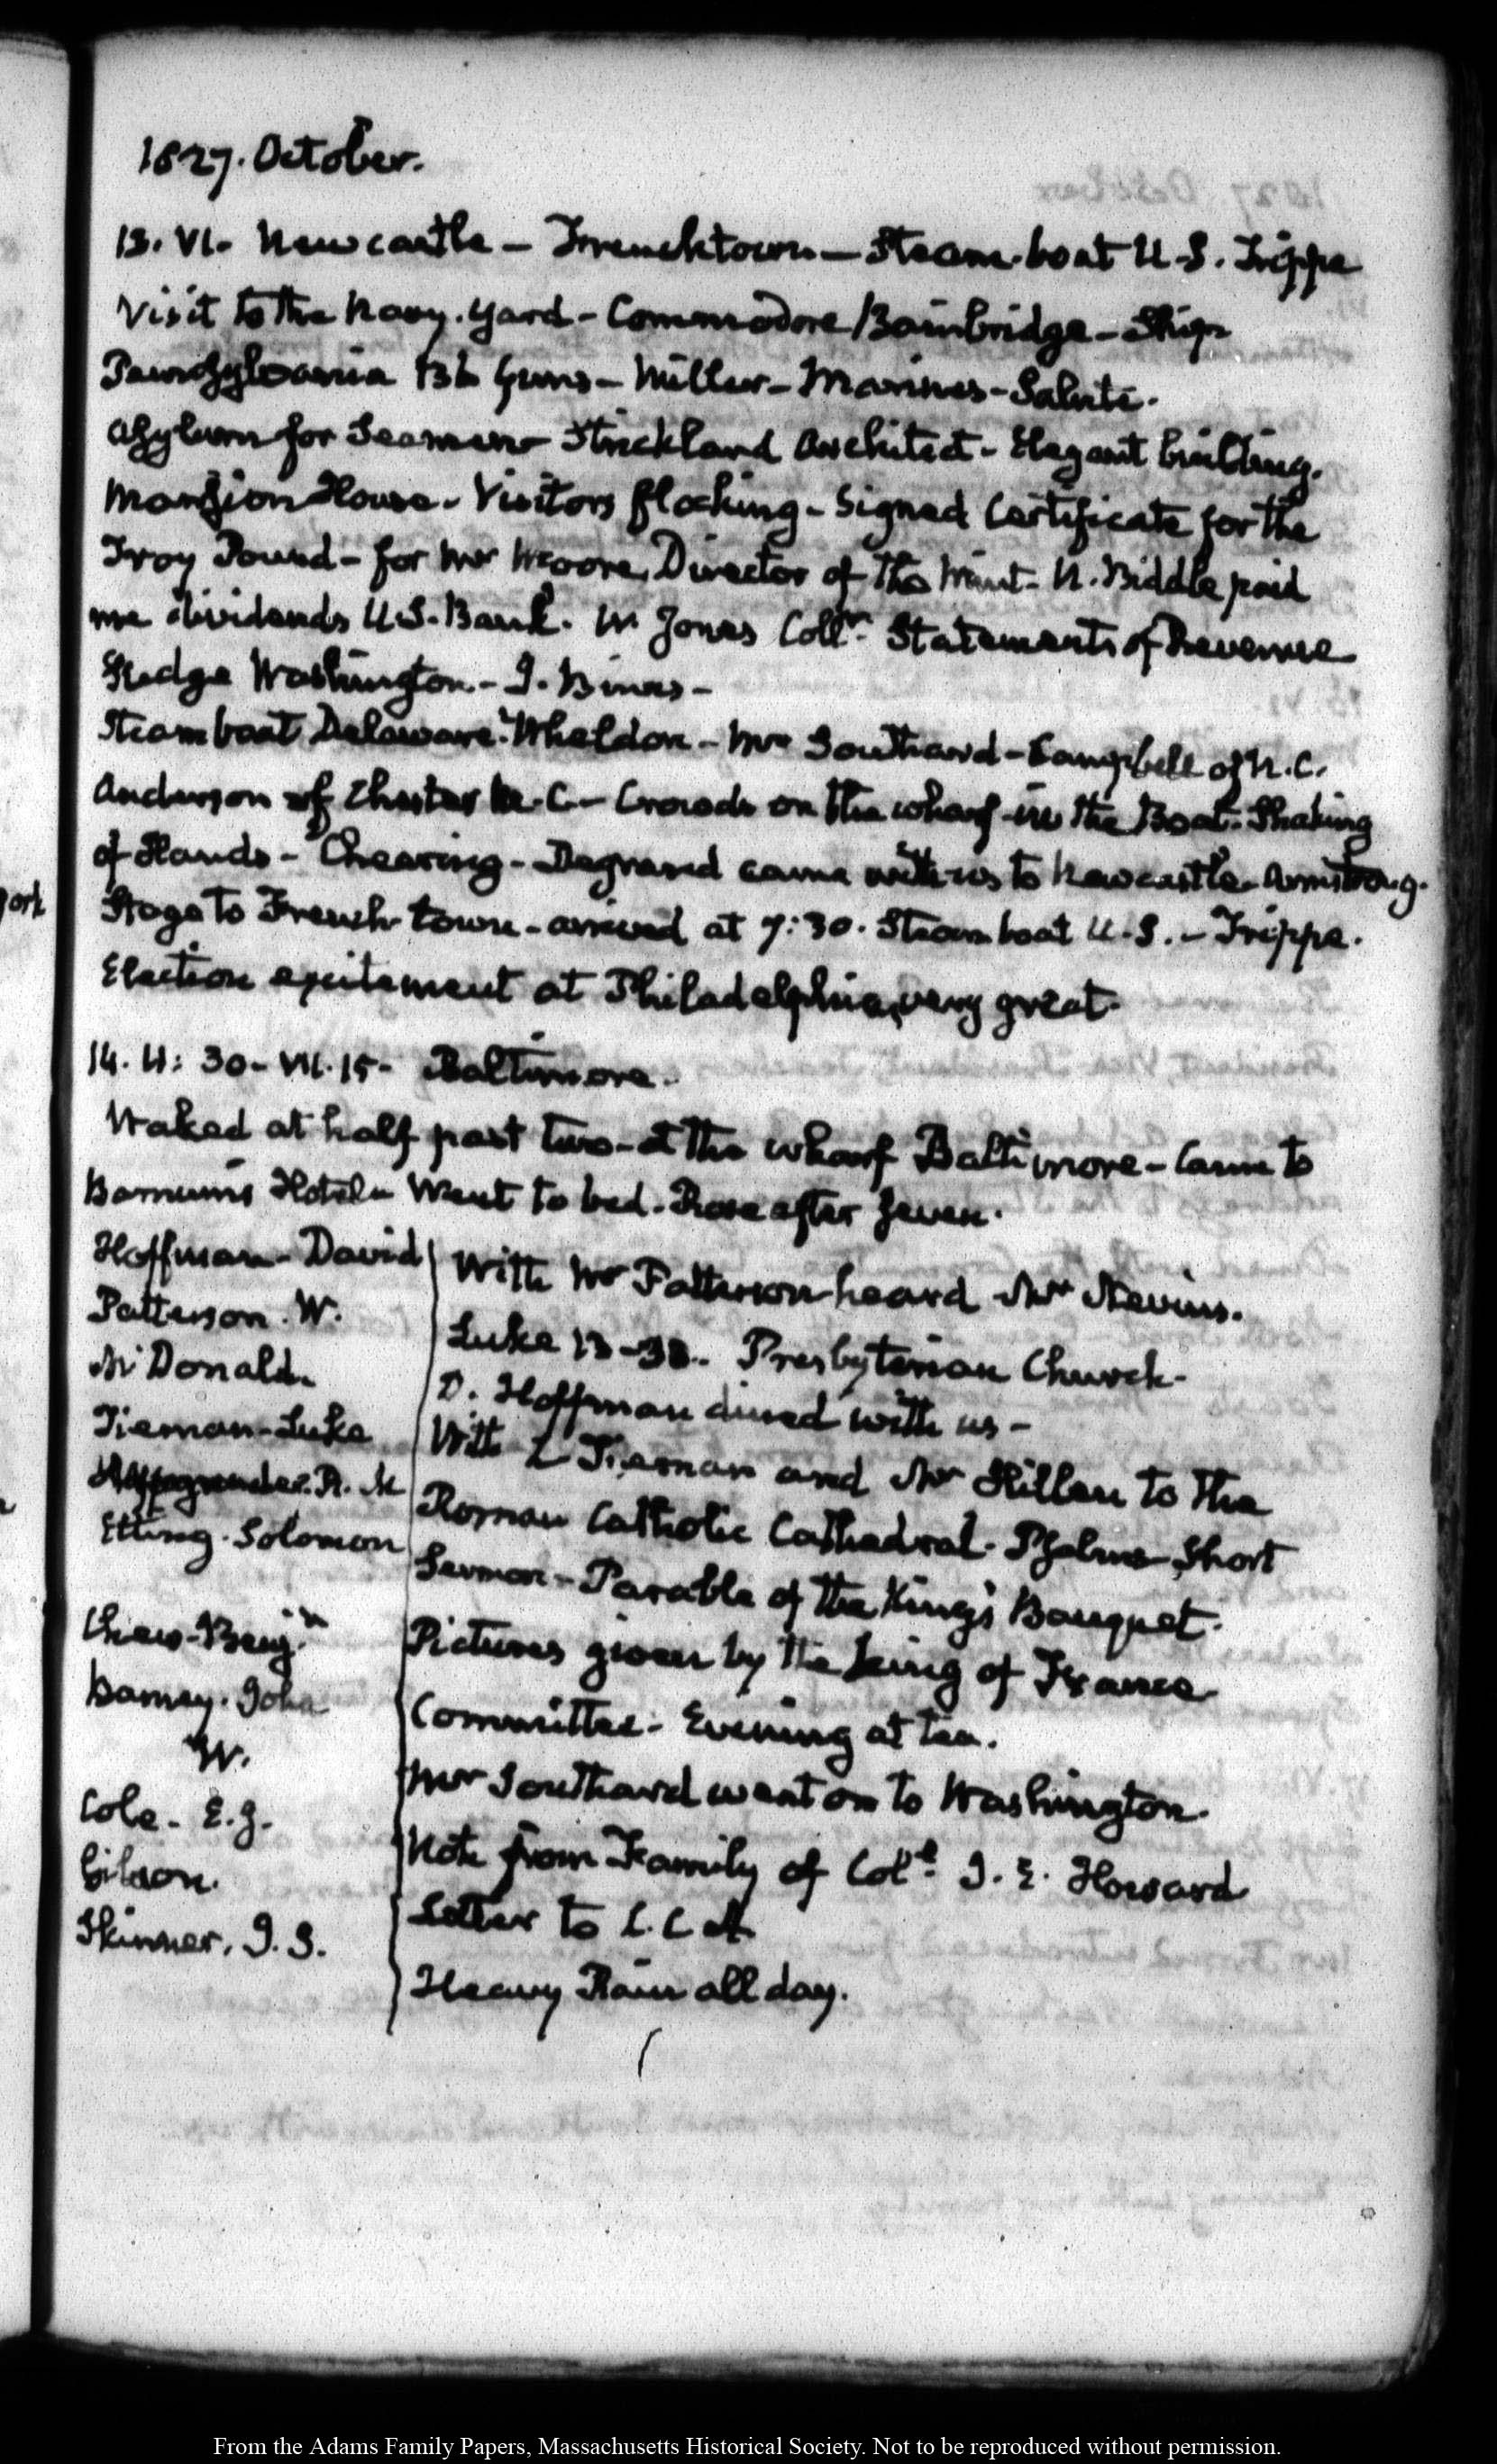 1827. October.
13. VI. Newcastle – Frenchtown – Steam-boat U.S. Trippe
Visit to the Navy-Yard – Commodore Bainbridge – Ship
Pennsylvania 136 Guns – Miller – Marines – Salute.
Asylum for Seamen – Strickland Architect – Elegant building.
Mansion House – Visitors flocking – Signed Certificate for the
Troy Pound – for Mr Moore, Director of the Mint – N. Biddle paid
me dividends U.S. Bank. W Jones Collr. Statements of Revenue
Sledge Washington – J. Binns –
Steam boat Delaware. Wheldon – Mr Southard – Campbell of N.C.
Anderson of Chester M.C. – Crowds on the wharf – in the Boat – Shaking
of Hands – Cheering – Degrand came with us to Newcastle – Armstrong.
Stage to French town – arrived at 7:30. Steam boat U.S. – Trippe.
Election excitement at Philadelphia, very great.
14. II: 30 – VII. 15 – Baltimore.
Waked at half past two – at the wharf Baltimore – Came to
Barnum's Hotel – Went to bed. Rose after seven.
Hoffman – David
Patterson. W.
McDonald.
Tiernan – Luke
R. M
Etting. Solomon
Chew – Benjn
Barney. John
W.
Cole – E. J.
Gibson.
Skinner, J. S.
With Mr Patterson heard Mr Nevins.
Luke 13 – Presbyterian Church.
D. Hoffman dined with us –
With L Tiernan and Mr Hillen to the
Roman Catholic Cathedral. Psalms, Short
Sermon – Parable of the King's Banquet.
Pictures given by the king of France
Committee – Evening at tea.
Mr Southard went on to Washington.
Note from Family of Coll. J. E. Howard
Letter to L. C. A.
Heavy Rain all day.
York
From the Adams Family Papers, Massachusetts Historical Society. Not to be reproduced without permission.